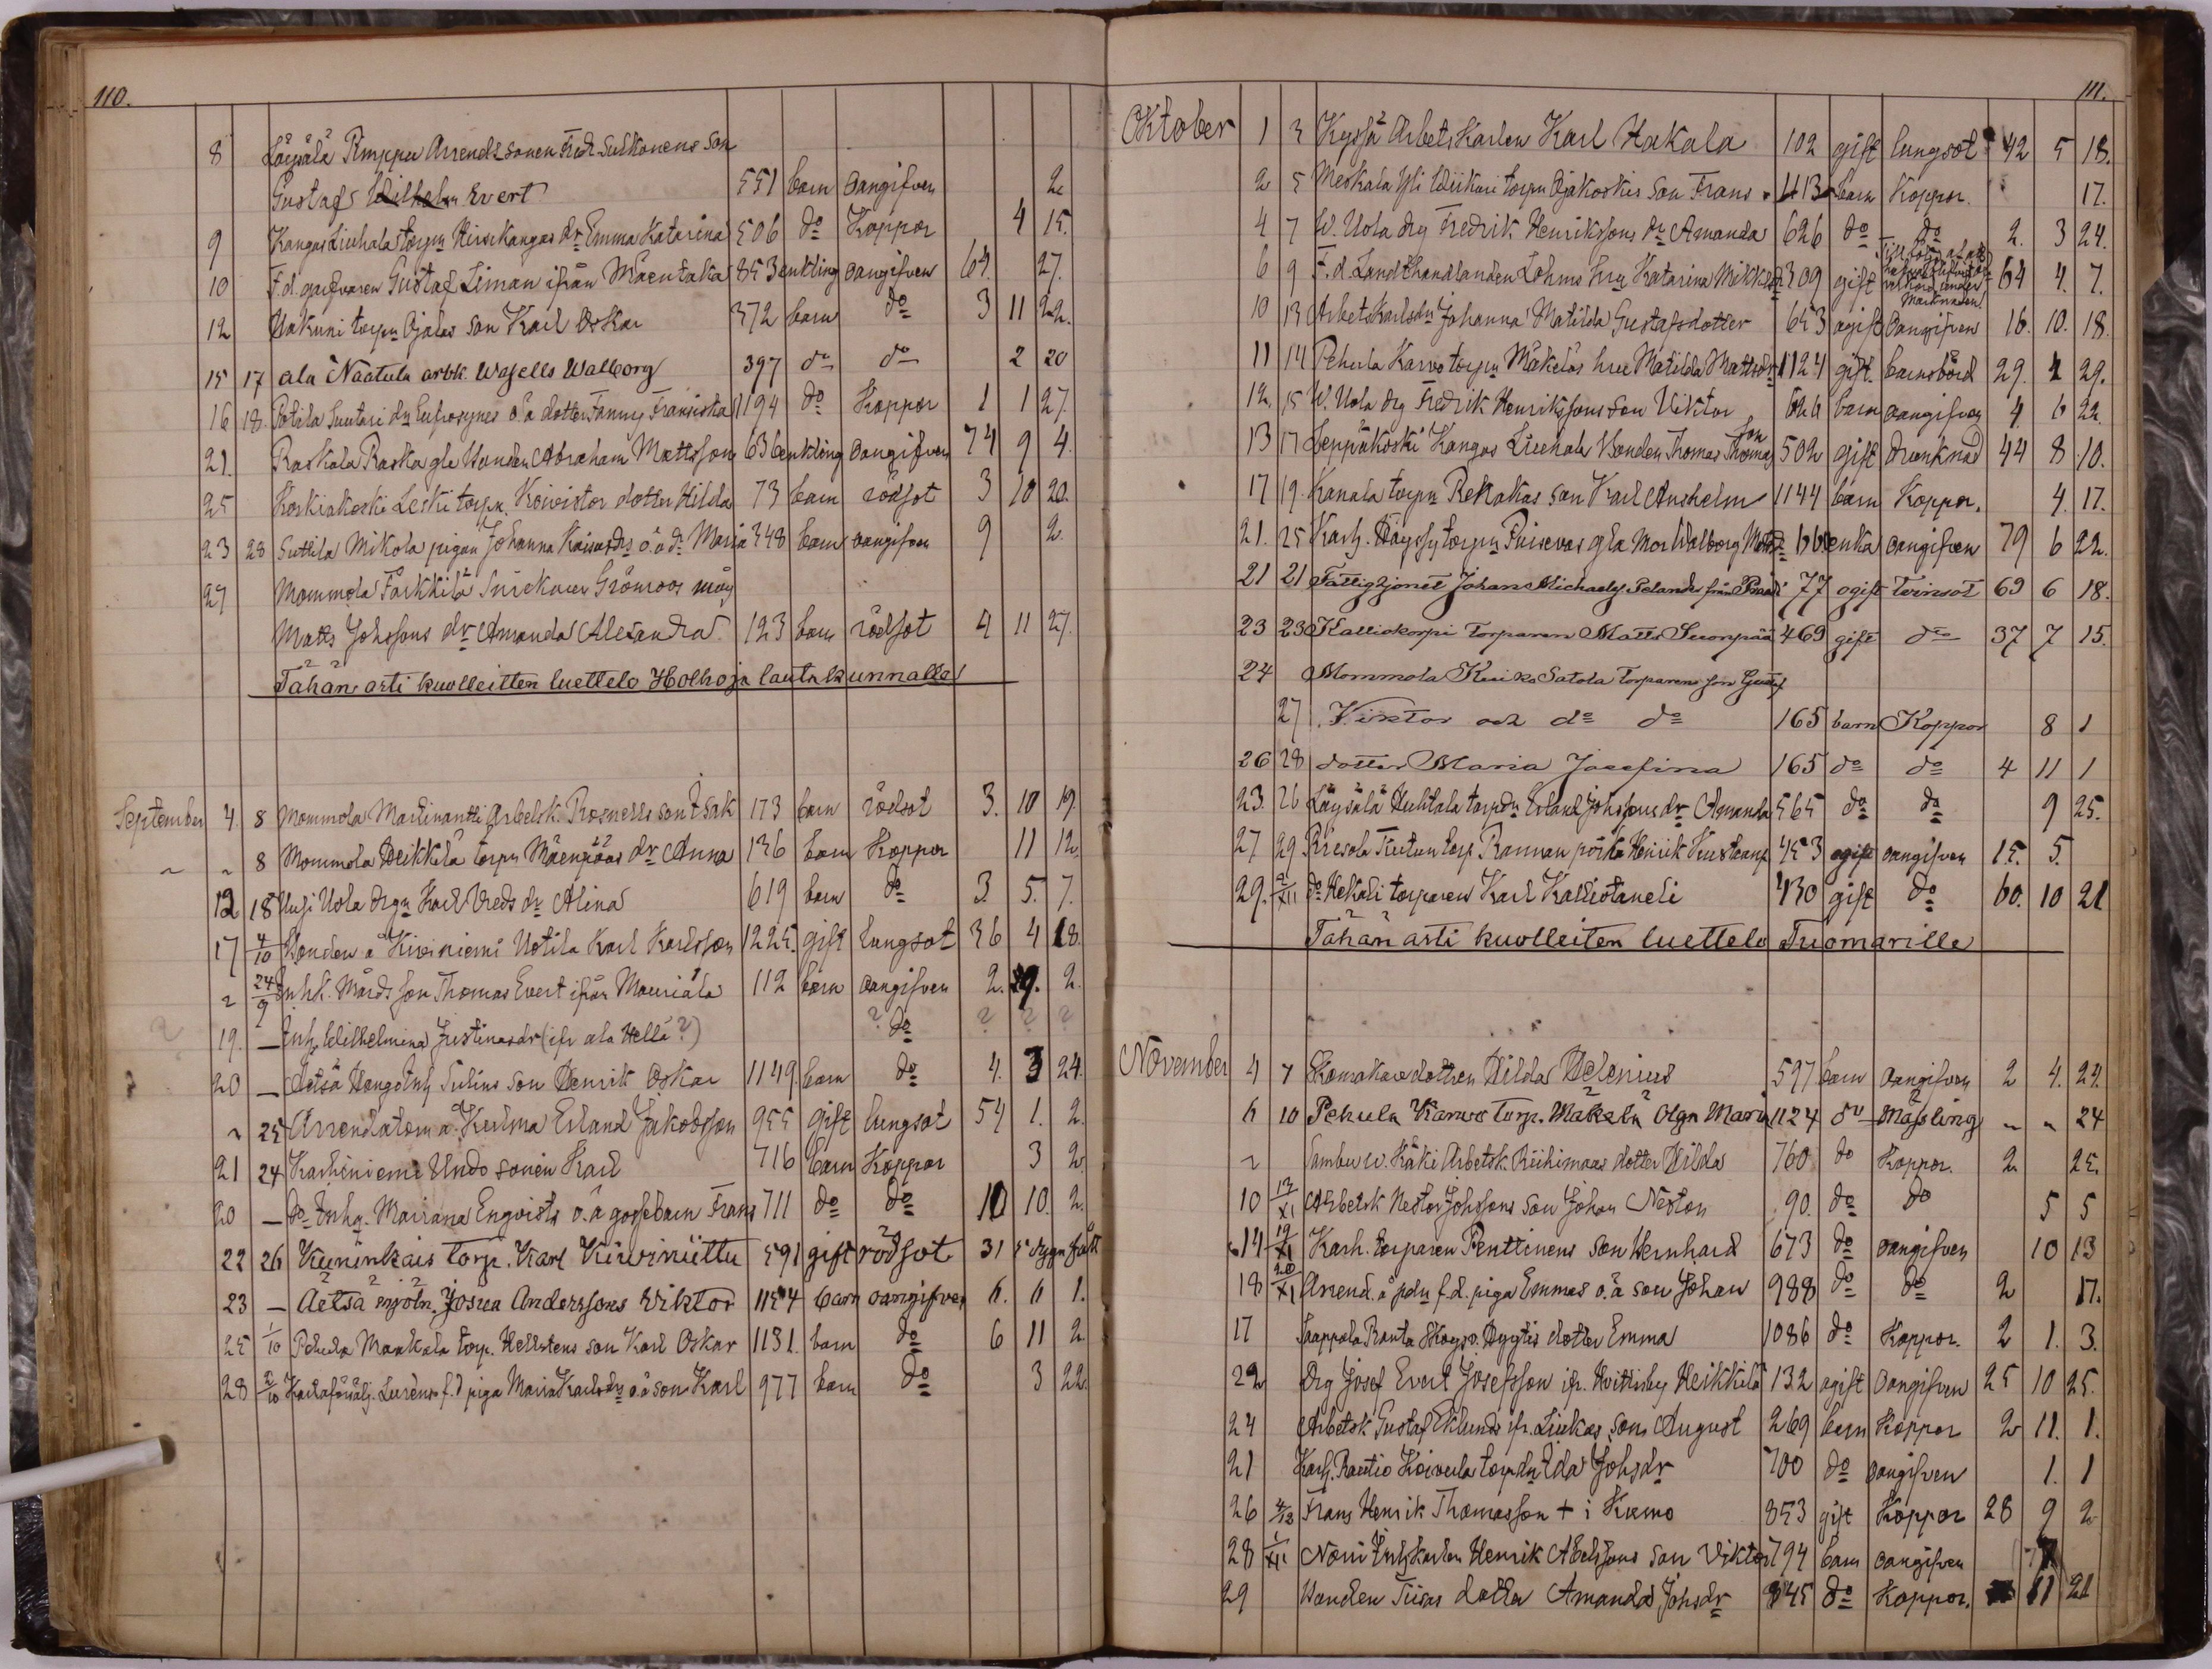 110.
8 Löysälä Rmppu Arrendssonen Fredr Sulkonens son
Gustaf Wilhelm Evert 551 barn oangifven 2
9 Kangas Liuhala torpn Hirvikangas dr Emma Katarina 506 do Koppor 4 15.
10 F.d. garfvaren Gustaf Liman ifrån Mäentaka 853 enkling oangifven 64. 27.
12 Uakuni torpn Ojalas son Karl Oskar 372 barn do 3 11 22.
15 17 ala Naatula arbk. Wasells Walborg 397 do do 2 20
16 18. Potila Suutari dn Eufrosynes o.ä dotter Fanny Fransiska 1194 do Koppor 1 1 27.
21. Raskala Raska gle bonden Abraham Mattsson 636 enkling oangifven 74 9 4.
25 Koskiakoski Leski torpn. Koivistos dotter Hilda 73 barn rödsot 3 10 20.
23 28 Suttila Mikola pigan Johanna Kaisasdrs o.ä dr Maria 348 barn oangifven 9 2.
27 Mommola Farkkila Snickaren Grönroos måg
Matts Johssons dr Amanda Alexandra 123 barn rödsot 4 11 27.
Tähän asti kuolleitten luettelo Holhoja lautakunnalle
September 4. 8 Mommola Martinantti Arbetsk. Rosnells son Isak 173 barn rödsot 3. 10 19.
~ ~ 8 Mommola Heikkilä torpn Mäenpääs dr Anna 136 barn Koppor 11 12.
12 18 Uusi Uola drgn Karl Vreds dr Alina 619 barn do 3. 5. 7.
17 4/10 Bonden å Kiviniemi Uotila Karl Karlsson 1225. gift lungsot 36 4 18.
~ 24/9 Inhk. Mårds son Thomas Evert ifrån Mauriala 112 barn oangifven 2. 9. 2.
19. — Inhs Wilhelmina Justinasdr (ifr ala Hellä?) ? do ? ? ?
20 — Aetsä Hangoinh Julius son Henrik Oskar 1149. barn do 4. 3 24.
~ 25 Arrendatorn å Kulma Erland Jakobsson 955 gift lungsot 54 1. 2.
21 24 Karhiniemi Undo sonen Karl 716 barn Koppor 3 2.
20 — do Inhn. Mariana Engvists o.ä gossebarn Frans 711 do do 10 10. 2.
22 26 Kuninkais Torp. Karl Kiviniittu 591 gift rödsot 31 5 dygn
23 — Aetsä mjöln. Josua Anderssons Viktor 1154 barn oangifven 6. 6 1.
25 1/10 Pehula Maakala torp. Hellstens son Karl Oskar 1131. barn do 6 11 2
28 2/10 f.d piga Maria Karlsdrs o.ä son Karl 977 barn do 3 22.
111.
Oktober 1 3 Kyssä Arbetskarlen Karl Hakala 102 gift lungsot 42 5 18.
2 5 Meskala Yli Wiikari torpn Ojakoskis son Frans 413 barn Koppor. 17.
4 7 W. Uola drg Fredrik Henrikssons dr Amanda 626 do do 2. 3 24.
6 9 F.d. Landthandlanden Lohms hru Katarina Mikkelsdr 309 gift Till följd af att marknaden 64 4. 7.
10 13 Arbetskarlsdn Johanna Matilda Gustafsdotter 653 ogift oangifven 16. 10. 18.
11 14 Pehula Karvo torpn Mäkeläs hru Matilda Mattsdr 1124 gift. barnsbörd 29. 1 29.
12. 15 W. Uola drg Fredrik Henrikssons son Viktor 626 barn oangifven 4. 6 22.
13 17 Leppäkoski Kangas Liuhala Bonden Thomas Thomasson 502 gift drunknad 44 8 10.
17 19. Kanala torpn Rekakas son Karl Anshelm 1144 barn Koppor. 4. 17.
21. 25 Karh. Häyssy torpn Puisevas gla Mor Walborg Mattsdr enka oangifven 79 6 22.
21 21 Fattighjonet Johan Michaelss. Selander från 77 ogift tvinsot 69 6 18.
23 23 Kalliokorpi Torparen Matts Suonpää 469 gift do 37 7 15.
24 Mommola Kuiko Satola torparens son Gustaf
27 Viktor och do do 165 barn Koppor 8 1
26 28 dotter Maria Josefina 165 do do 4 11 1
23. 26 Löysälä Huhtala torpdn Erland Johssons dr Amanda 565 do do 9 25.
27 29 Riesola Tuutun torp. Rannan poika Henrik Kustaanp. 453 ogift oangifven 15. 5.
29. 2/XII do Kekoli torparen Karl Kalliotaneli 430 gift do 60. 10 21
Tähän asti kuolleiten luettelo Tuomarille
November 4 7 Skomakaredottren Hilda Helenius 597 barn oangifven 2 4. 24.
6 10 Pehula Karvo Torp. Makela Olga Maria 1124 do Mässling ~ ~ 24
~ Sambu W. Käki Arbetsk. Riihimaas dotter Hilda 760 do Koppor. 2. 25.
10 13/XI Arbetsk Nestor Johssons son Johan Nestor 90. do do 5 5
14 19/XI Karh. torparen Penttinens son Hernhard 673 do oangifven 10 13
18 20/XI Arrend. å pdn f.d. piga Emmas o.ä son Johan 988 do do 2 17.
17 Saappala Ranta Skogv. Hyytis dotter Emma 1086 do Koppor. 2 1. 3.
22 Drg Josef Evert Josefsson ifr. Hvittisby Heikkilä 132 ogift Oangifven 25 10 25.
24 Arbetsk Gustaf Eklunds ifr. Liukas son August 269 barn Koppor 2 11. 1.
21 Karh. Rautio Koivula torpdn Ida Johsdr 700 do oangifven 1. 1
26 4/12 Frans Henrik Thomasson + i Kumo 853 gift Koppor 28 9 2
28 1/XII Nori Inhskarlen Henrik Abelssons son Viktor 794 barn oangifven
29 Bonden Tiisas dotter Amanda Johsdr 845 do Koppor. 11 21